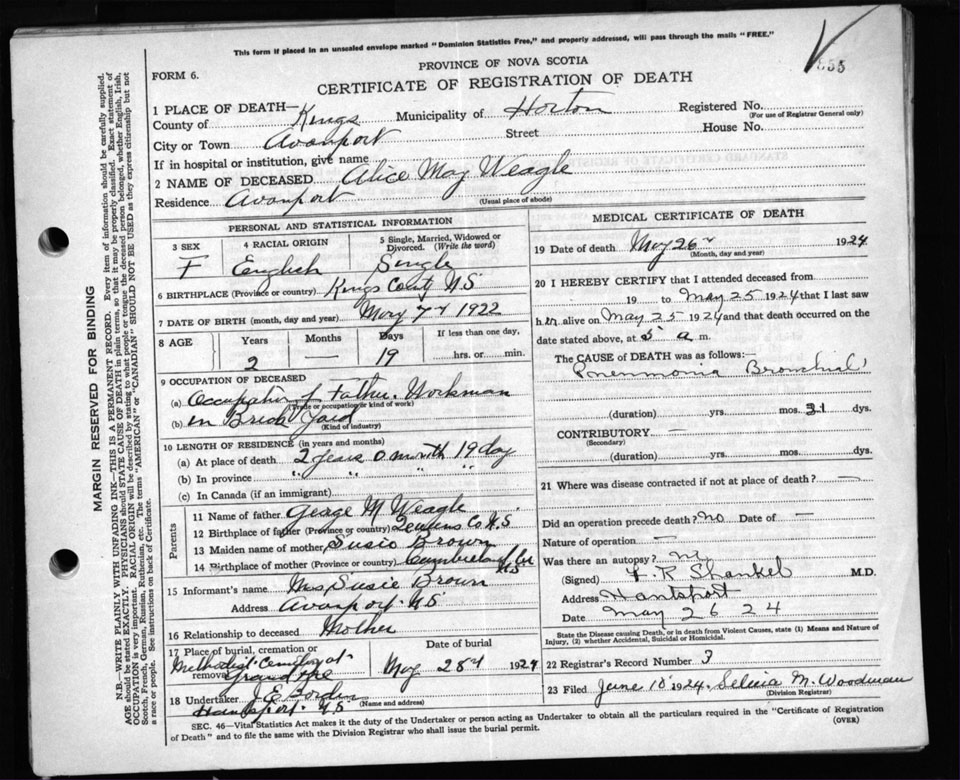 This form if placed in an unsealed envelope marked "Dominion Statistics Free," and properly addressed, will pass through the mails "FREE."
PROVINCE OF NOVA SCOTIA
FORM 6.
CERTIFICATE OF REGISTRATION OF DEATH
1 PLACE OF DEATH—
County of Kings Municipality of Horton Registered No.
(For use of Registrar General only)
City or Town Avonport Street House No.
If in hospital or institution, give name
2 NAME OF DECEASED Alice May Weagle
Residence Avonport (Usual place of abode)
PERSONAL AND STATISTICAL INFORMATION
3 SEX 4 RACIAL ORIGIN 5 Single, Married, Widowed or Divorced. (Write the word)
F English Single
6 BIRTHPLACE (Province or country) Kings Cout N.S
7 DATE OF BIRTH (month, day and year) May 7th 1922
8 AGE Years Months Days If less than one day,
2 — 19 hrs. or min.
9 OCCUPATION OF DECEASED
(a) Occupation of Father. Workman
(Trade or occupation or kind of work)
(b) in Brick Yard
(Kind of industry)
10 LENGTH OF RESIDENCE (in years and months)
(a) At place of death 2 years 0 month 19 day
(b) In province " " " "
(c) In Canada (if an immigrant)
Parents
11 Name of father George M Weagle
12 Birthplace of father (Province or country) Queens Co N.S
13 Maiden name of mother Susie Brown
14 Birthplace of mother (Province or country) Cumberland Co
N.S
15 Informant's name Mrs Susie Brown
Address Avonport. N.S
16 Relationship to deceased Mother
17 Place of burial, cremation or removal Date of burial
Methodist Cemetery at
Grand Pre May 28th 1924
18 Undertaker J. E. Borden
(Name and address)
Hantsport. N.S
MEDICAL CERTIFICATE OF DEATH
19 Date of death May 26th 1924
(Month, day and year)
20 I HEREBY CERTIFY that I attended deceased from
19 to May 25 1924 that I last saw
her alive on May 25 1924 and that death occurred on the
date stated above, at 5 a m.
The CAUSE OF DEATH was as follows:—
Pneumonia Bronchial
(duration) yrs. mos. 31 dys.
CONTRIBUTORY —
(Secondary)
(duration) yrs. mos. dys.
21 Where was disease contracted if not at place of death? —
Did an operation precede death? No Date of —
Nature of operation —
Was there an autopsy? No
(Signed) Shankel M.D.
Address Hantsport
Date May 26 24
State the Disease causing Death, or in death from Violent Causes, state (1) Means and Nature of Injury, (2) whether Accidental, Suicidal or Homicidal.
22 Registrar's Record Number 3
23 Filed June 10 1924. Selina M. Woodman
(Division Registrar)
SEC. 46—Vital Statistics Act makes it the duty of the Undertaker or person acting as Undertaker to obtain all the particulars required in the "Certificate of Registration
of Death" and to file the same with the Division Registrar who shall issue the burial permit.
(OVER)
MARGIN RESERVED FOR BINDING
N.B.—WRITE PLAINLY WITH UNFADING INK—THIS IS A PERMANENT RECORD. Every item of information should be carefully supplied.
AGE should be stated EXACTLY. PHYSICIANS should STATE CAUSE OF DEATH in plain terms, so that it may be properly classified. Exact statement of
OCCUPATION is very important. RACIAL ORIGIN will be described by stating to what people or tongue the deceased person belonged, whether English, Irish,
Scotch, French, German, Russian, Ruthenian, etc. The terms "AMERICAN" or "CANADIAN" SHOULD NOT BE USED as they express citizenship but not
a race or people. See instructions on back of Certificate.